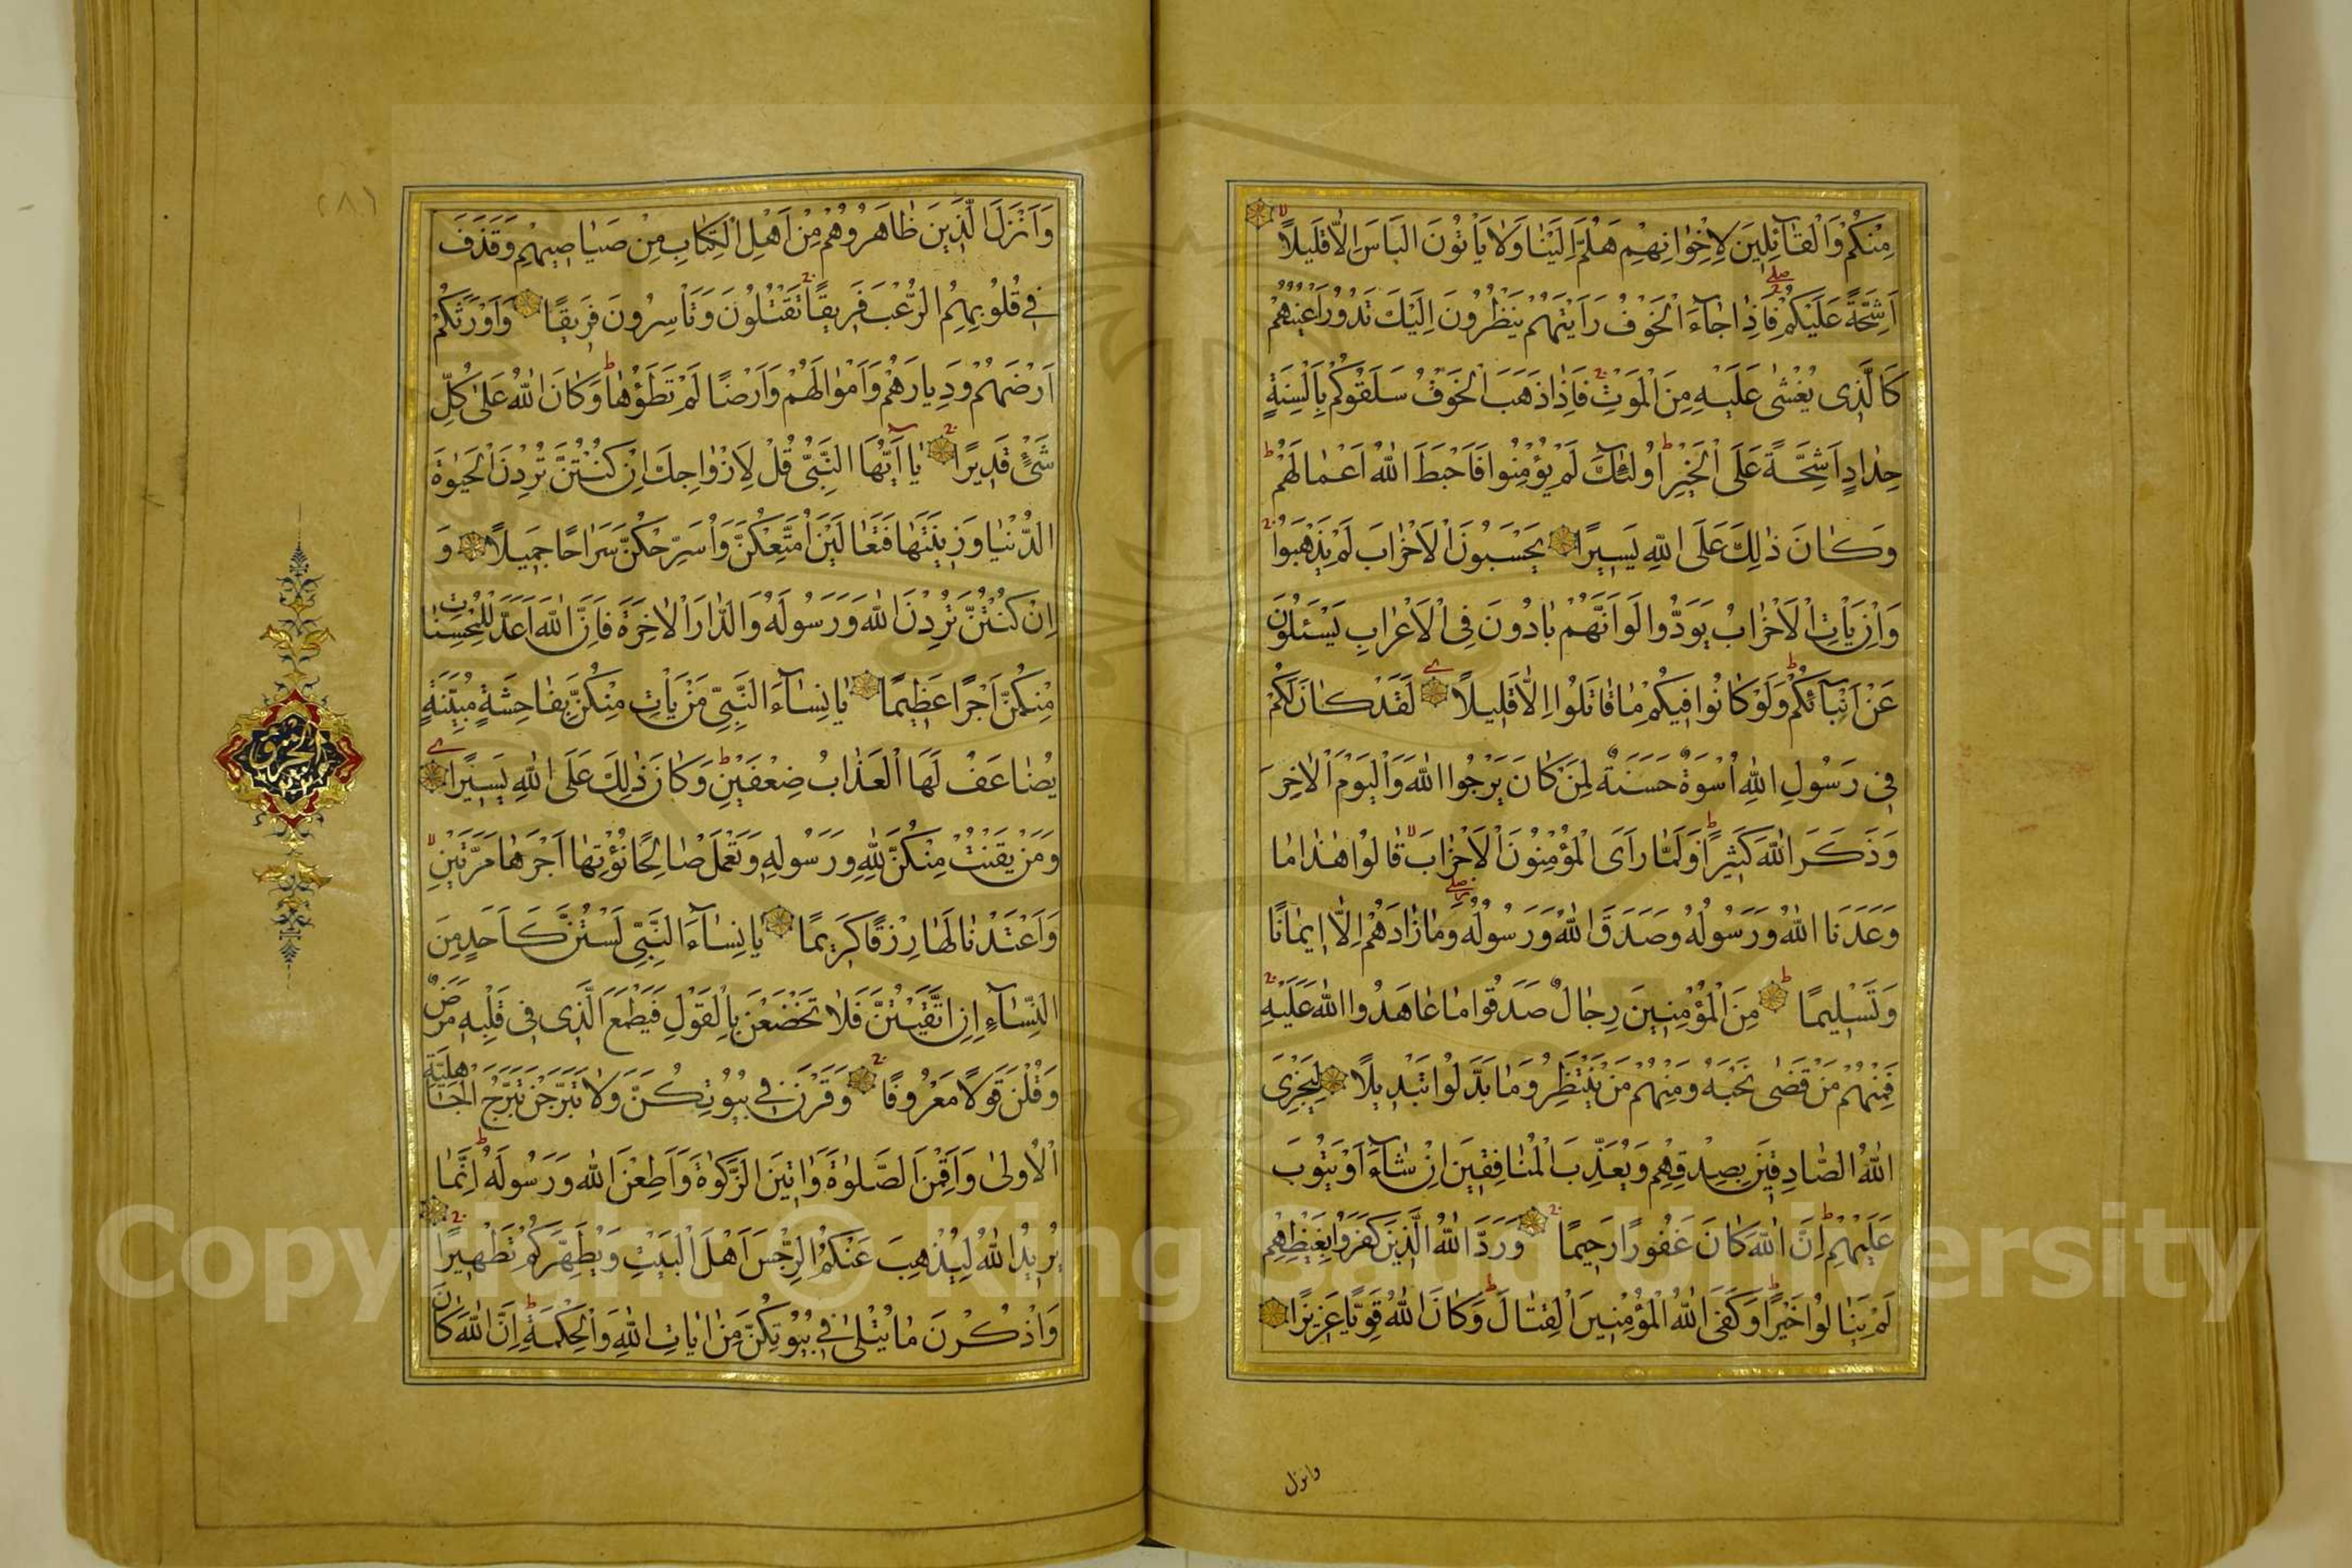 مِنْكُمْ وَالْقَآئِلِينَ لِاِخْوَانِهِمْ هَلُمَّ اِلَيْنَا وَلَا يَأْتُونَ الْبَأْسَ اِلَّا قَلِيلًا
اَشِحَّةً عَلَيْكُمْ فَاِذَا جَآءَ الْخَوْفُ رَاَيْتَهُمْ يَنْظُرُونَ اِلَيْكَ تَدُورُ اَعْيُنُهُمْ
كَالَّذِى يُغْشٰى عَلَيْهِ مِنَ الْمَوْتِ فَاِذَا ذَهَبَ الْخَوْفُ سَلَقُوكُمْ بِاَلْسِنَةٍ
حِدَادٍ اَشِحَّةً عَلَى الْخَيْرِ اُولٰئِكَ لَمْ يُؤْمِنُوا فَاَحْبَطَ اللّٰهُ اَعْمَالَهُمْ
وَكَانَ ذٰلِكَ عَلَى اللّٰهِ يَسِيرًا يَحْسَبُونَ الْاَحْزَابَ لَمْ يَذْهَبُوا
وَاِنْ يَاْتِ الْاَحْزَابُ يَوَدُّوا لَوْ اَنَّهُمْ بَادُونَ فِى الْاَعْرَابِ يَسْئَلُونَ
عَنْ اَنْبَآئِكُمْ وَلَوْ كَانُوا فِيكُمْ مَا قَاتَلُوا اِلَّا قَلِيلًا لَقَدْ كَانَ لَكُمْ
فِى رَسُولِ اللّٰهِ اُسْوَةٌ حَسَنَةٌ لِمَنْ كَانَ يَرْجُوا اللّٰهَ وَالْيَوْمَ الْاٰخِرَ
وَذَكَرَ اللّٰهَ كَثِيرًا وَلَمَّا رَاَى الْمُؤْمِنُونَ الْاَحْزَابَ قَالُوا هٰذَا مَا
وَعَدَنَا اللّٰهُ وَرَسُولُهُ وَصَدَقَ اللّٰهُ وَرَسُولُهُ وَمَا زَادَهُمْ اِلَّا اِيمَانًا
وَتَسْلِيمًا مِنَ الْمُؤْمِنِينَ رِجَالٌ صَدَقُوا مَا عَاهَدُوا اللّٰهَ عَلَيْهِ
فَمِنْهُمْ مَنْ قَضٰى نَحْبَهُ وَمِنْهُمْ مَنْ يَنْتَظِرُ وَمَا بَدَّلُوا تَبْدِيلًا لِيَجْزِىَ
اللّٰهُ الصَّادِقِينَ بِصِدْقِهِمْ وَيُعَذِّبَ الْمُنَافِقِينَ اِنْ شَآءَ اَوْ يَتُوبَ
عَلَيْهِمْ اِنَّ اللّٰهَ كَانَ غَفُورًا رَحِيمًا وَرَدَّ اللّٰهُ الَّذِينَ كَفَرُوا بِغَيْظِهِمْ
لَمْ يَنَالُوا خَيْرًا وَكَفَى اللّٰهُ الْمُؤْمِنِينَ الْقِتَالَ وَكَانَ اللّٰهُ قَوِيًّا عَزِيزًا
وانزل
٢٨٦
وَاَنْزَلَ الَّذِينَ ظَاهَرُوهُمْ مِنْ اَهْلِ الْكِتَابِ مِنْ صَيَاصِيهِمْ وَقَذَفَ
فِى قُلُوبِهِمُ الرُّعْبَ فَرِيقًا تَقْتُلُونَ وَتَأْسِرُونَ فَرِيقًا وَاَوْرَثَكُمْ
اَرْضَهُمْ وَدِيَارَهُمْ وَاَمْوَالَهُمْ وَاَرْضًا لَمْ تَطَؤُهَا وَكَانَ اللّٰهُ عَلٰى كُلِّ
شَىْءٍ قَدِيرًا يَا اَيُّهَا النَّبِىُّ قُلْ لِاَزْوَاجِكَ اِنْ كُنْتُنَّ تُرِدْنَ الْحَيٰوةَ
الدُّنْيَا وَزِينَتَهَا فَتَعَالَيْنَ اُمَتِّعْكُنَّ وَاُسَرِّحْكُنَّ سَرَاحًا جَمِيلًا وَ
اِنْ كُنْتُنَّ تُرِدْنَ اللّٰهَ وَرَسُولَهُ وَالدَّارَ الْاٰخِرَةَ فَاِنَّ اللّٰهَ اَعَدَّ لِلْمُحْسِنَاتِ
مِنْكُنَّ اَجْرًا عَظِيمًا يَا نِسَآءَ النَّبِىِّ مَنْ يَاْتِ مِنْكُنَّ بِفَاحِشَةٍ مُبَيِّنَةٍ
يُضَاعَفْ لَهَا الْعَذَابُ ضِعْفَيْنِ وَكَانَ ذٰلِكَ عَلَى اللّٰهِ يَسِيرًا
الجزؤ
وَمَنْ يَقْنُتْ مِنْكُنَّ لِلّٰهِ وَرَسُولِهِ وَتَعْمَلْ صَالِحًا نُؤْتِهَا اَجْرَهَا مَرَّتَيْنِ
وَاَعْتَدْنَا لَهَا رِزْقًا كَرِيمًا يَا نِسَآءَ النَّبِىِّ لَسْتُنَّ كَاَحَدٍ مِنَ
النِّسَآءِ اِنِ اتَّقَيْتُنَّ فَلَا تَخْضَعْنَ بِالْقَوْلِ فَيَطْمَعَ الَّذِى فِى قَلْبِهِ مَرَضٌ
وَقُلْنَ قَوْلًا مَعْرُوفًا وَقَرْنَ فِى بُيُوتِكُنَّ وَلَا تَبَرَّجْنَ تَبَرُّجَ الْجَاهِلِيَّةِ
الْاُولٰى وَاَقِمْنَ الصَّلٰوةَ وَاٰتِينَ الزَّكٰوةَ وَاَطِعْنَ اللّٰهَ وَرَسُولَهُ اِنَّمَا
يُرِيدُ اللّٰهُ لِيُذْهِبَ عَنْكُمُ الرِّجْسَ اَهْلَ الْبَيْتِ وَيُطَهِّرَكُمْ تَطْهِيرًا
وَاذْكُرْنَ مَا يُتْلٰى فِى بُيُوتِكُنَّ مِنْ اٰيَاتِ اللّٰهِ وَالْحِكْمَةِ اِنَّ اللّٰهَ كَانَ
Copyright © King Saud University